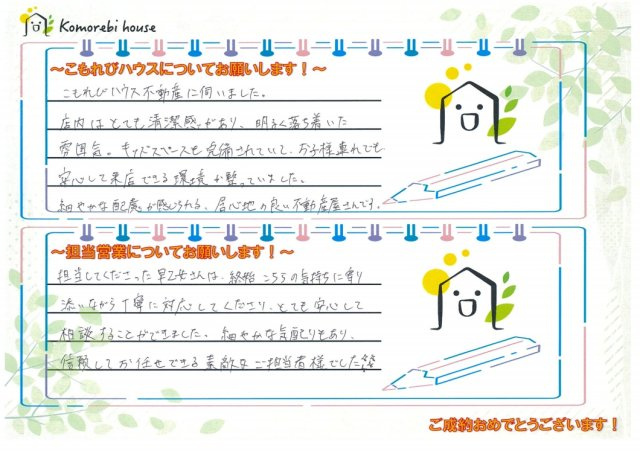 Komorebi house
～こもれびハウスについてお願いします！～
こもれびハウス不動産に伺いました。
店内はとても清潔感があり、明るく落ち着いた
雰囲気。キッズスペースも完備されていて、お子様連れでも
安心して来店できる環境が整っていました。
細やかな配慮が感じられる、居心地の良い不動産屋さんです。
～担当営業についてお願いします！～
担当してくださった早乙女さんは、終始こちらの気持ちに寄り
添いながら丁寧に対応してくださり、とても安心して
相談することができました。細やかな気配りもあり、
信頼してお任せできる素敵なご担当者様でした
ご成約おめでとうございます！